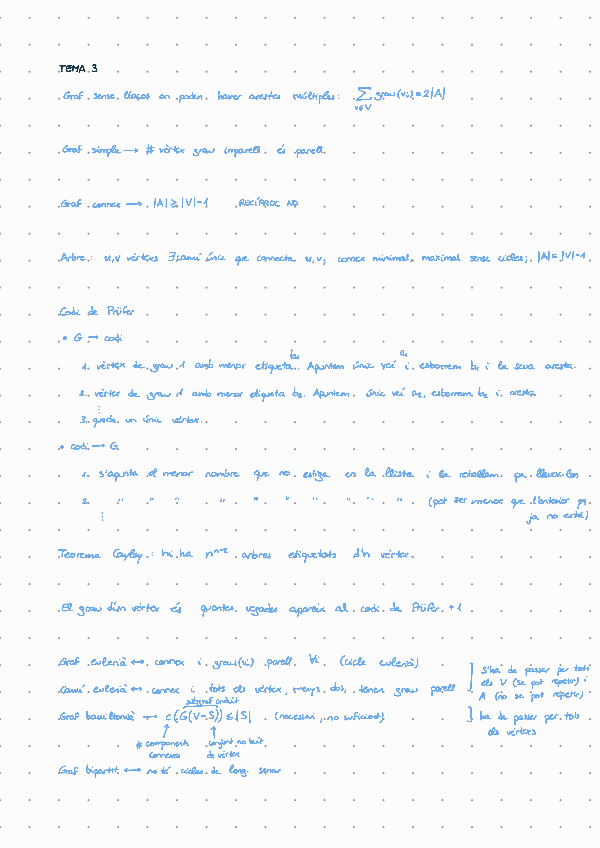 TEMA 3
Graf sense llaços on poden haver arestes múltiples: ∑ grau(vi) = 2|A|
v∈V
Graf simple → # vèrtex grau imparell és parell.
Graf connex → |A| ≥ |V|-1 RECÍPROC NO
Arbre: u,v vèrtexs ∃ camí únic que connecta u,v; connex minimal, maximal sense cicles; |A| = |V|-1
Codi de Prüfer
• G → codi
b₁ a₁
1. vèrtex de grau 1 amb menor etiqueta. Apuntem únic veí i esborrem b₁ i la seva aresta.
2. vèrtex de grau 1 amb menor etiqueta b₂. Apuntem únic veí a₂, esborrem b₂ i aresta
⋮
3. queda un únic vèrtex.
• codi → G
1. s'apunta el menor nombre que no estiga en la llista i la retallem
2. " " " " " " " " " " (pot ser menor que l'anterior pq
⋮ ja no està)
Teorema Cayley: hi ha nⁿ⁻² arbres etiquetats d'n vèrtex.
El grau d'un vèrtex és quantes vegades apareix al codi de Prüfer +1
Graf eulerià ↔ connex i grau(vi) parell ∀i (cicle eulerià)
Camí eulerià ↔ connex i tots els vèrtex, menys dos, tenen grau parell
S'ha de passar per tots
els V (se pot repetir) i
A (no se pot repetir)
subgraf induït
Graf hamiltonià → c(G(V-S)) ≤ |S| (necessària, no suficient)
ha de passar per tots
els vèrtexs
# components conjunt no buit
connexes de vèrtex
Graf bipartit ↔ no té cicles de long. senar